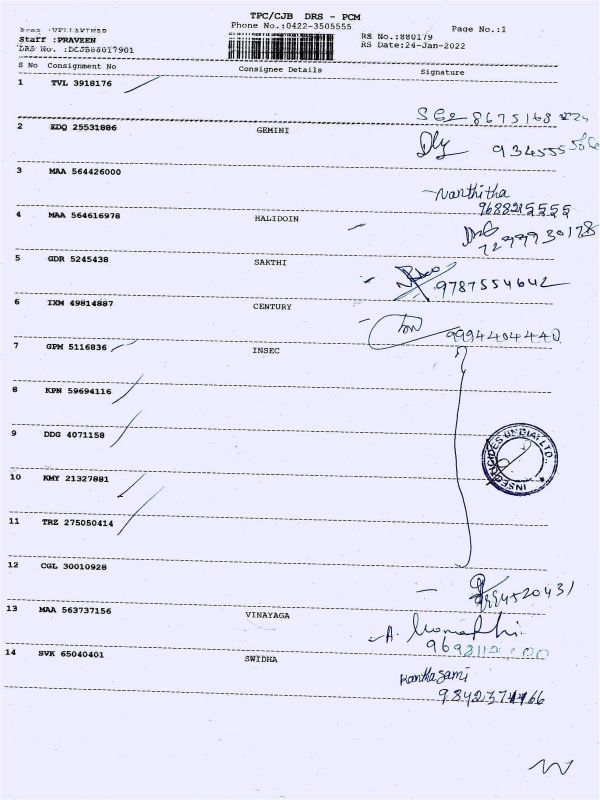 TPC/CJB DRS - PCM
Phone No.:0422-3505555
Page No.:1
Staff :PRAVEEN
RS No.:880179
DRS No. :DCJB88017901
RS Date:24-Jan-2022
S No Consignment No Consignee Details Signature
1 TVL 3918176
2 EDQ 25531886 GEMINI
3 MAA 564426000
Nanthitha
9688215555
4 MAA 564616978 HALIDOIN
5 GDR 5245438 SAKTHI
9787554642
6 IXM 49814887 CENTURY
9994404440
7 GPM 5116836 INSEC
8 KPN 59694116
9 DDG 4071158
INSECTICIDES (INDIA) LTD.
10 KMY 21327881
11 TRZ 275050414
12 CGL 30010928
9994520431
13 MAA 563737156 VINAYAGA
14 SVK 65040401 SWIDHA
Kanthasami